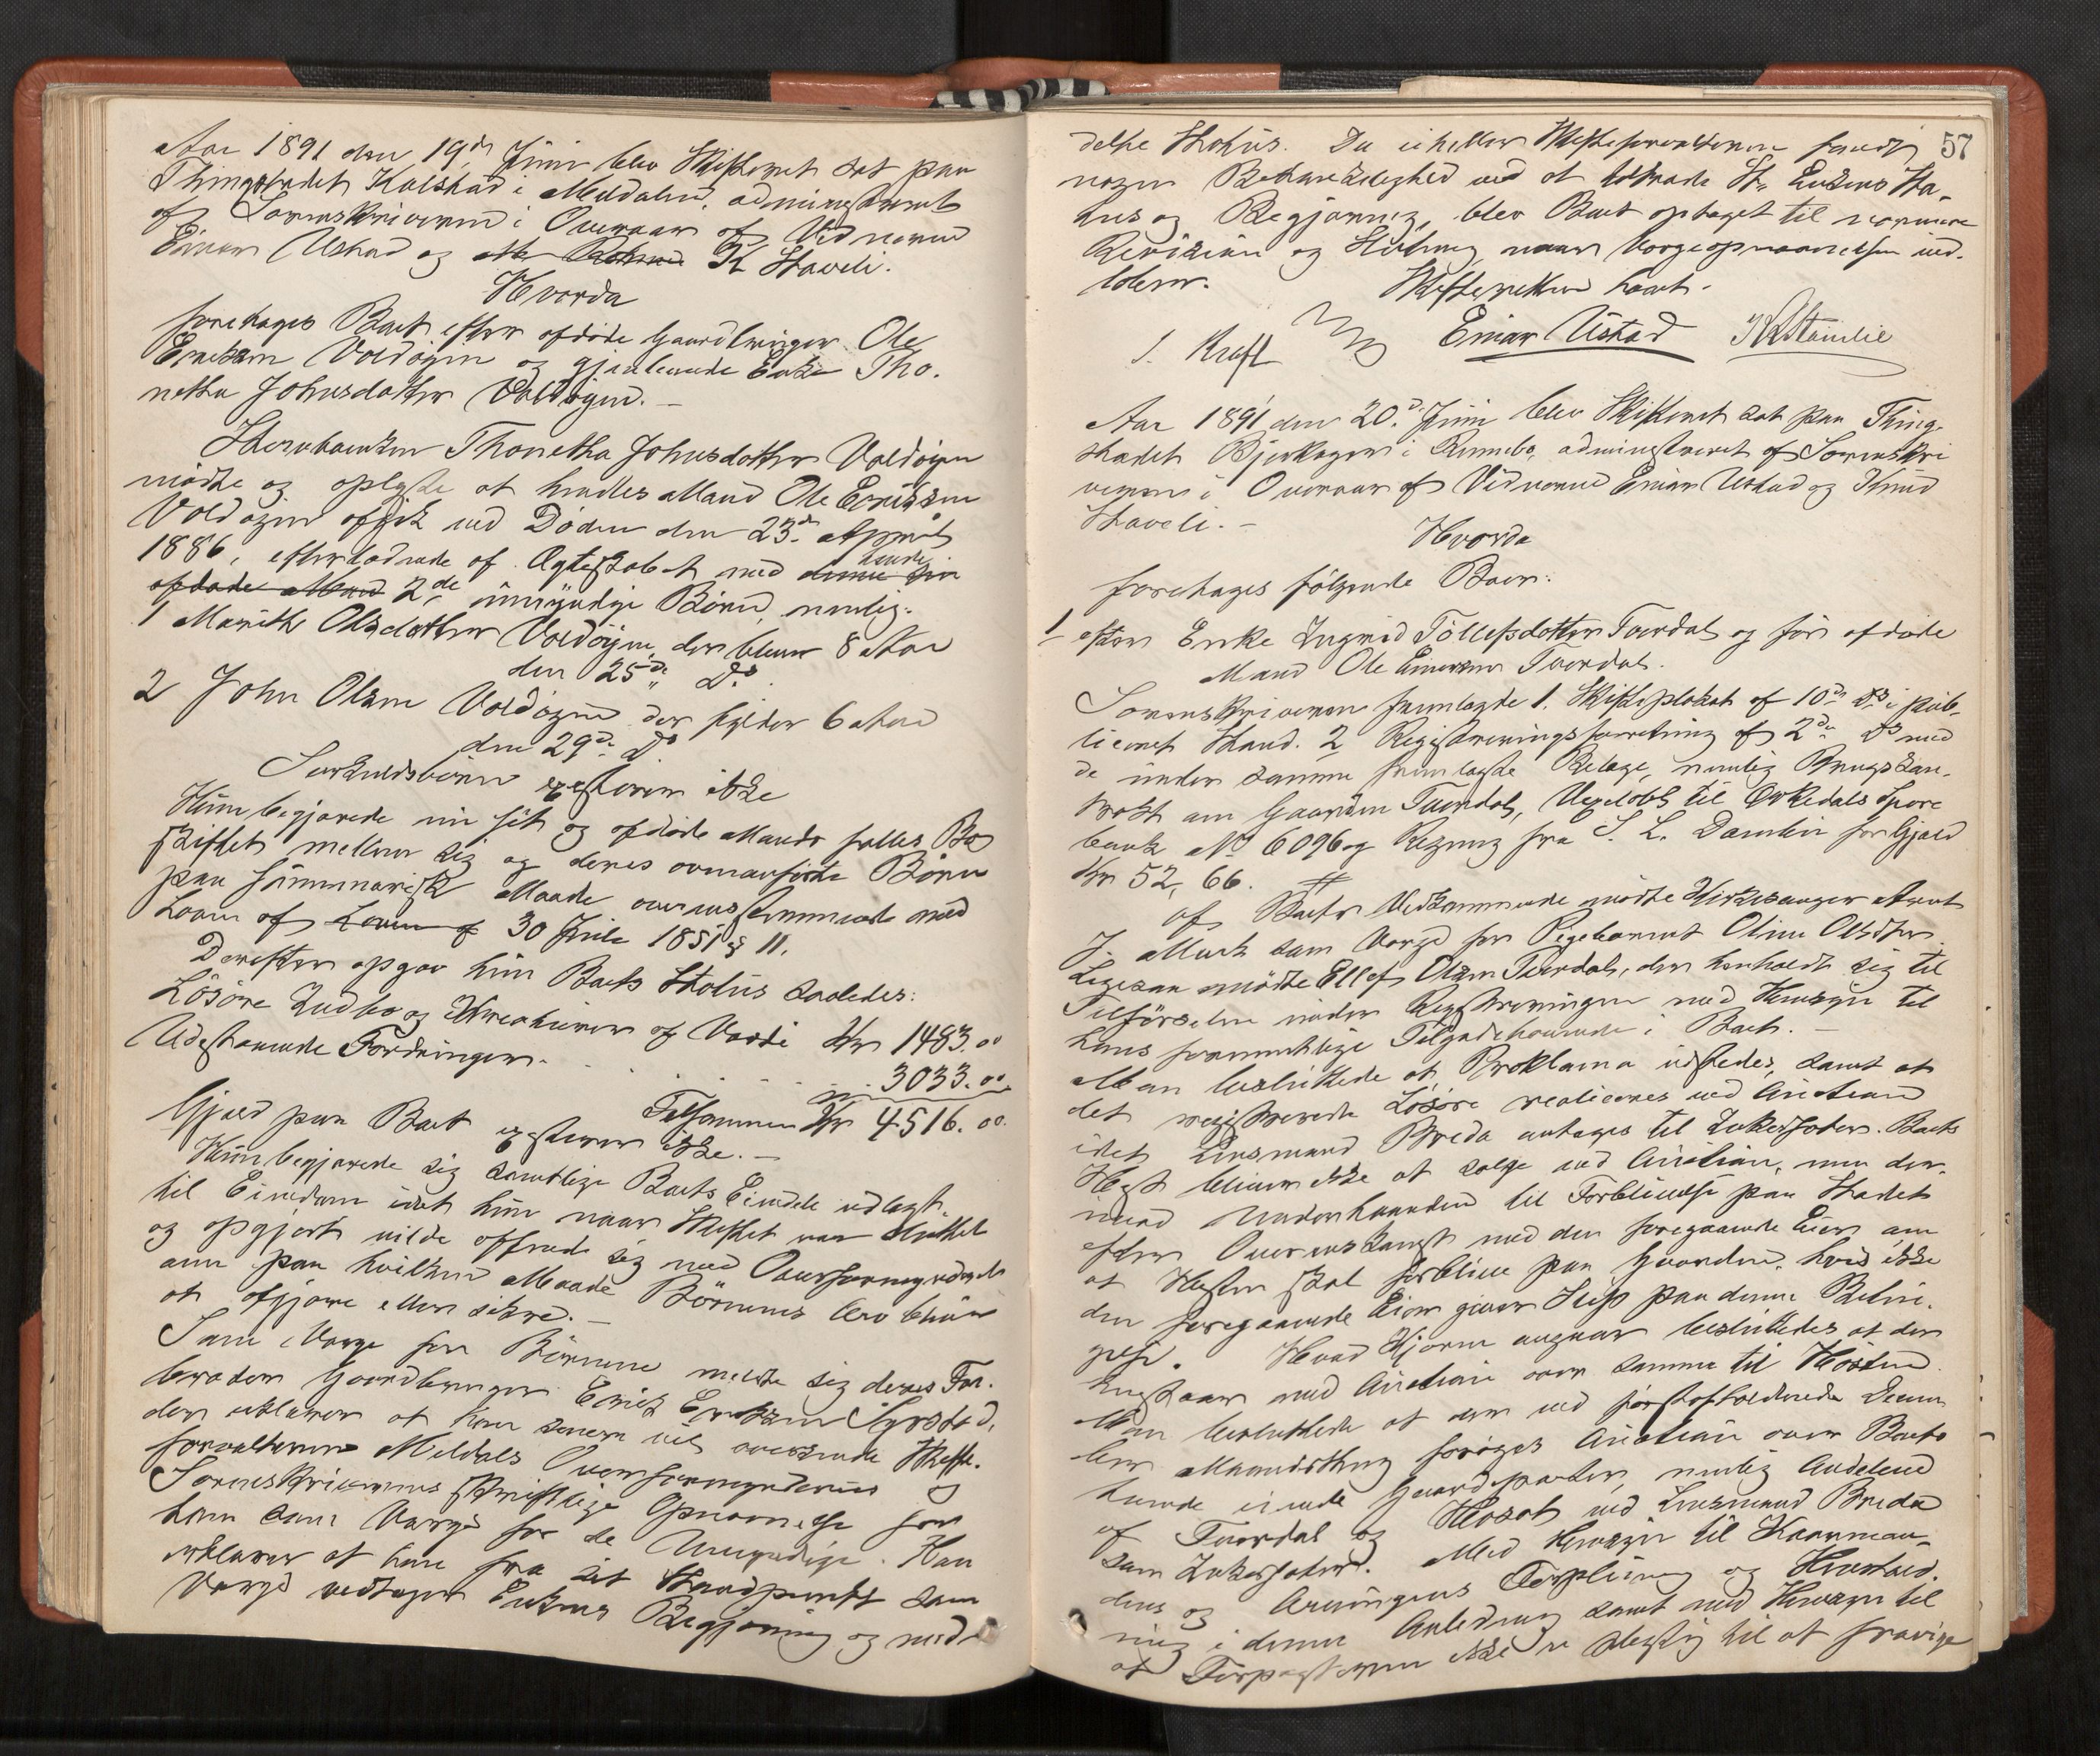 Aar 1891 den 19de Juni blev Skifteret sat paa
Thingstedet Kalstad i Meldalen, administreret
af Sorenskriveren i Overvær af Vidnerne
Einar Ustad og K Haveli.
Hvorda
foretoges Boet efter afdøde Gaardbruger Ole
Ericksen Voldøien og gjenlevende Enke Tho-
netha Johnsdatter Voldøien. -
Thonetha Johnsdatter Voldøien
mødte og oplyste at hendes Mand Ole Ericksen
Voldøien afgik ved Døden den 23de April
1886, efterladende af Ægteskabet med hende
afdøde Mand 2de umyndige Børn, nemlig:
1 Marithe Olsdatter Voldøien, der bliver 8 Aar
den 25de ds.
2 John Olsen Voldøien der fylder 6 Aar
den 29de ds
Særkuldsbørn existerer ikke
Hun begjærede nu sit og afdøde Mands fælles Bo
skiftet mellem sig og deres ovenanførte Børn
paa summarisk Maade overensstemmende med
Loven af Loven af 30 Juli 1851 § 11.
Derefter opgav hun Boets Status saaledes:
Løsøre Indbo og Kreaturer af Værdi Kr 1483.00
Udestaaende Fordringer . . . . . 3033.00
Tilsammen Kr 4516.00
Gjæld paa Boet existerer ikke. -
Hun begjærede sig samtlige Boets Eiendele udlagt
til Eiendom idet hun naar Skiftet var sluttet
og opgjort vilde affinde sig med Overformynderiet
om paa hvilken Maade Børnenes Arv bliver
at afgjøre eller sikre. -
Som Værge for Børnene meldte sig deres Far-
broder Gaardbruger Erick Ericksen Syrstad,
der erklærer at han senere vil oversende Skifte-
forvalteren Meldals Overformynderies og
Sorenskriverens skriftlige Opnævnelse for
ham som Værge for de Umyndige. Han
erklærer at han fra sit Standpunkt som
Værge vedtager Enkens Begjæring og med-
57
delte Status. Da ei heller Skifteforvalteren fandt
nogen Betænkelighed ved at tiltræde Enkens Sta-
tus og Begjæring, blev Boet optaget til nærmere
Revision og Slutning, naar Værgeopnævnelsen ind-
løber.
Skifteretten hævet.
S. Kraft Einar Ustad
Aar 1891 den 20de Juni blev Skifteret sat paa Thing-
stedet Bjerkager i Rennebo, administreret af Sorenskri
veren i Overvær af Vidnerne Einar Ustad og Knud
Haveli. -
Hvorda
foretoges følgende Boer:
1 efter Enke Ingrid Tollefsdatter Tverdal og før afdøde
Mand Ole Einarsen Tverdal.
Sorenskriveren fremlagde 1. Skifteplakat af 10de ds i pub-
liceret Stand. 2 Registreringsforretning af 2den ds med
de under samme fremlagte Bilage, nemlig Brugskon-
trakt om Gaarden Tverdal, Vexelobl. til Orkedals Spare
bank No 6096 og Regning fra S. L. Domlie for Gjæld
Kr 52,66.
Af Boets Vedkommende mødte Kirkesanger Arnt
J. Mærk som Værge for Pigebarnet Oline Olsdtr.
Ligesaa mødte Ellef Olsen Tverdal, der henholdt sig til
Tilførselen under Registreringen med Hensyn til
hans formentlige Tilgodehavende i Boet. -
Man besluttede at Proklama udstedes, samt at
det registrerede Løsøre realiseres ved Auction
idet Lensmand Breda antages til Inkassator. Boets
Hest bliver ikke at sælge ved Auction, men der-
imod Underhaanden til Forblivelse paa Stedet
efter Overenskomst med den foregaaende Eier om
at Hesten skal forblive paa Gaarden, hvis ikke
den foregaaende Eier giver Slip paa denne Betin-
gelse. Hvad angaar besluttedes at der
med Auction over samme til Høsten.
Man besluttede at der ved førstafholdende Decem
ber Maanedsthing forsøges Auction over Boets
havende eiende Gaardparter, nemlig Andelene
af Tverdal og Hosat ved Lensmand Breda
som Inkassator. Med Hensyn til Kaarman-
dens og Arvingens Forpleining og Henstand.
ning i denne Anledning samt med Hensyn til
at Forpagteren ikke er pligtig til at fravige